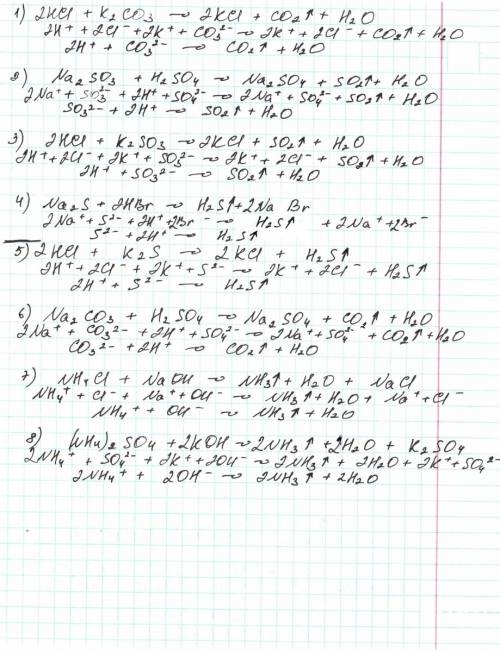 1) 2HCl + K₂CO₃ → 2KCl + CO₂↑ + H₂O
2H⁺ + 2Cl⁻ + 2K⁺ + CO₃²⁻ → 2K⁺ + 2Cl⁻ + CO₂↑ + H₂O
2H⁺ + CO₃²⁻ → CO₂↑ + H₂O
2) Na₂SO₃ + H₂SO₄ → Na₂SO₄ + SO₂↑ + H₂O
2Na⁺ + SO₃²⁻ + 2H⁺ + SO₄²⁻ → 2Na⁺ + SO₄²⁻ + SO₂↑ + H₂O
SO₃²⁻ + 2H⁺ → SO₂↑ + H₂O
3) 2HCl + K₂SO₃ → 2KCl + SO₂↑ + H₂O
2H⁺ + 2Cl⁻ + 2K⁺ + SO₃²⁻ → 2K⁺ + 2Cl⁻ + SO₂↑ + H₂O
2H⁺ + SO₃²⁻ → SO₂↑ + H₂O
4) Na₂S + 2HBr → H₂S↑ + 2NaBr
2Na⁺ + S²⁻ + 2H⁺ + 2Br⁻ → H₂S↑ + 2Na⁺ + 2Br⁻
S²⁻ + 2H⁺ → H₂S↑
5) 2HCl + K₂S → 2KCl + H₂S↑
2H⁺ + 2Cl⁻ + 2K⁺ + S²⁻ → 2K⁺ + 2Cl⁻ + H₂S↑
2H⁺ + S²⁻ → H₂S↑
6) Na₂CO₃ + H₂SO₄ → Na₂SO₄ + CO₂↑ + H₂O
2Na⁺ + CO₃²⁻ + 2H⁺ + SO₄²⁻ → 2Na⁺ + SO₄²⁻ + CO₂↑ + H₂O
CO₃²⁻ + 2H⁺ → CO₂↑ + H₂O
7) NH₄Cl + NaOH → NH₃↑ + H₂O + NaCl
NH₄⁺ + Cl⁻ + Na⁺ + OH⁻ → NH₃↑ + H₂O + Na⁺ + Cl⁻
NH₄⁺ + OH⁻ → NH₃↑ + H₂O
8) (NH₄)₂SO₄ + 2KOH → 2NH₃↑ + 2H₂O + K₂SO₄
2NH₄⁺ + SO₄²⁻ + 2K⁺ + 2OH⁻ → 2NH₃↑ + 2H₂O + 2K⁺ + SO₄²⁻
2NH₄⁺ + 2OH⁻ → 2NH₃↑ + 2H₂O